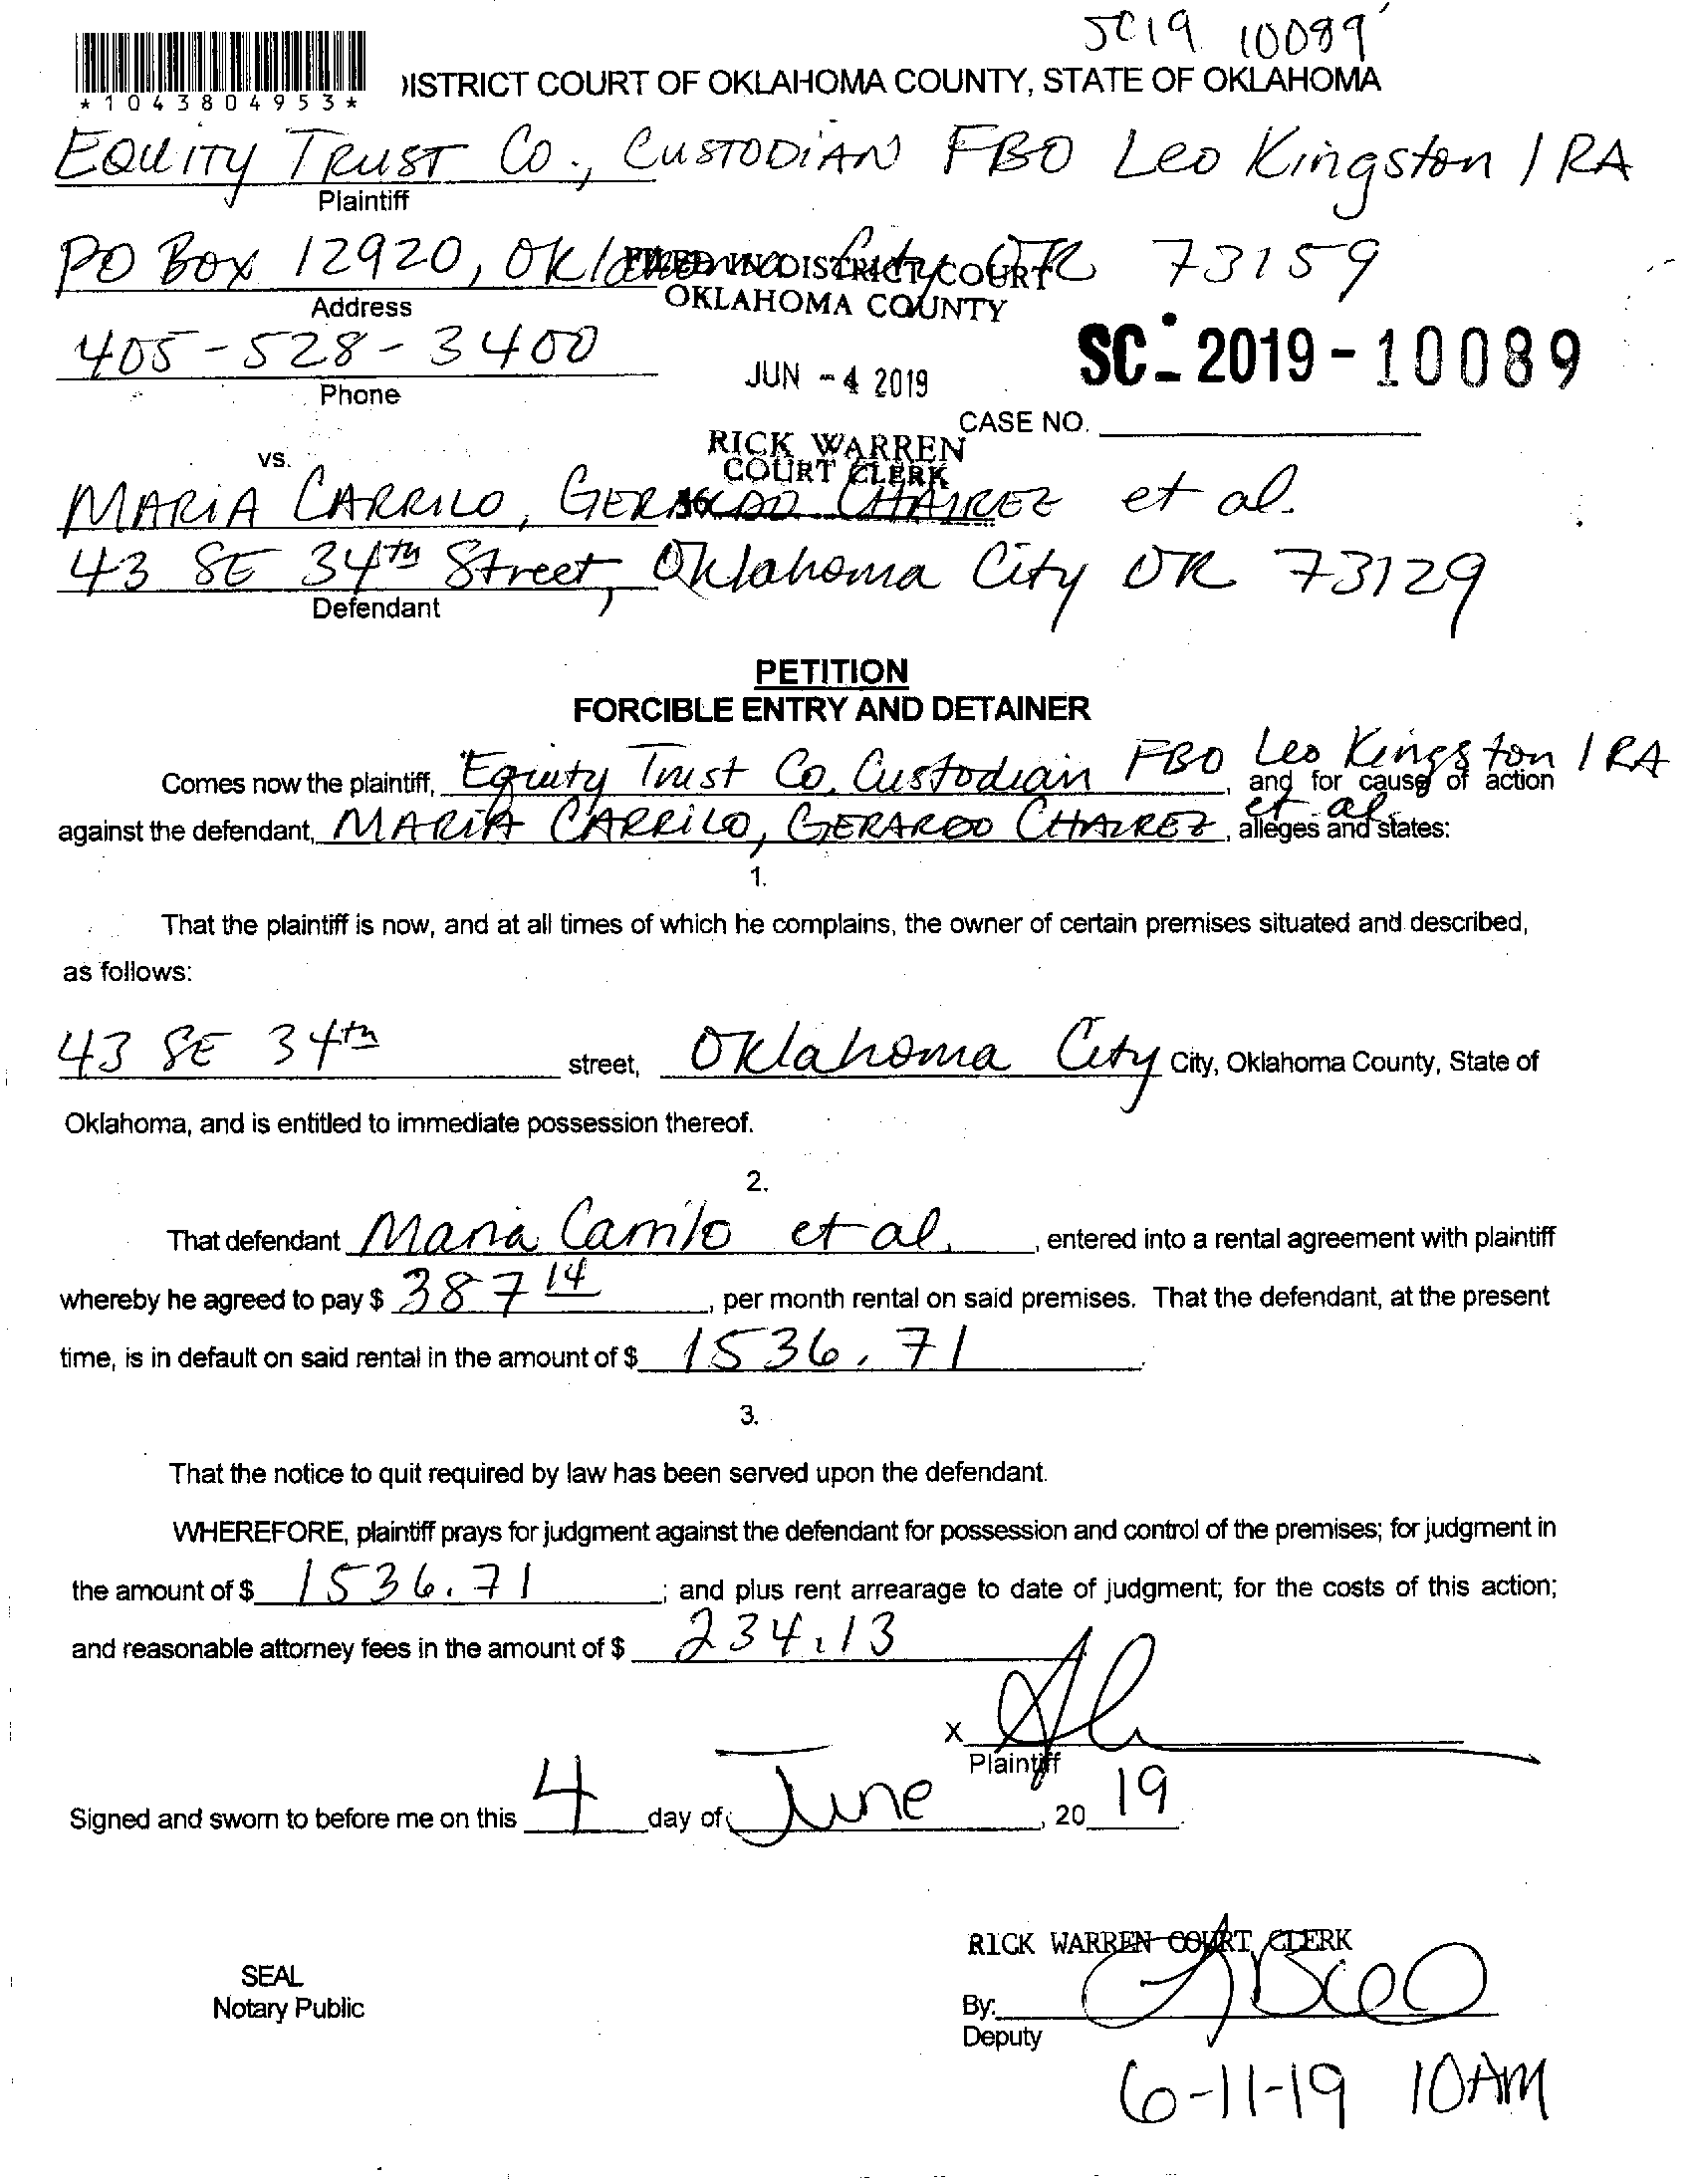 SC19 10089
*1043804953*
DISTRICT COURT OF OKLAHOMA COUNTY, STATE OF OKLAHOMA
EQUITY TRUST CO., CUSTODIAN FBO Leo Kingston IRA
Plaintiff
PO Box 12920, Oklahoma City OK 73159
FILED IN DISTRICT COURT
OKLAHOMA COUNTY
Address
405-528-3400
Phone
JUN - 4 2019
SC - 2019 - 10089
CASE NO.
RICK WARREN
COURT CLERK
vs.
MARIA CARRILO, GERARDO CHAIREZ et al.
43 SE 34th Street, Oklahoma City OK 73129
Defendant
PETITION
FORCIBLE ENTRY AND DETAINER
Comes now the plaintiff, Equity Trust Co. Custodian FBO Leo Kingston IRA, and for cause of action
against the defendant, MARIA CARRILO, GERARDO CHAIREZ et al., alleges and states:
1.
That the plaintiff is now, and at all times of which he complains, the owner of certain premises situated and described,
as follows:
43 SE 34th street, Oklahoma City City, Oklahoma County, State of
Oklahoma, and is entitled to immediate possession thereof.
2.
That defendant Maria Carrilo et al., entered into a rental agreement with plaintiff
whereby he agreed to pay $ 387 14, per month rental on said premises. That the defendant, at the present
time, is in default on said rental in the amount of $ 1536.71.
3.
That the notice to quit required by law has been served upon the defendant.
WHEREFORE, plaintiff prays for judgment against the defendant for possession and control of the premises; for judgment in
the amount of $ 1536.71; and plus rent arrearage to date of judgment; for the costs of this action;
and reasonable attorney fees in the amount of $ 234.13
X
Plaintiff
Signed and sworn to before me on this 4 day of June, 20 19.
RICK WARREN COURT CLERK
SEAL
Notary Public
By:
Deputy
6-11-19 10AM